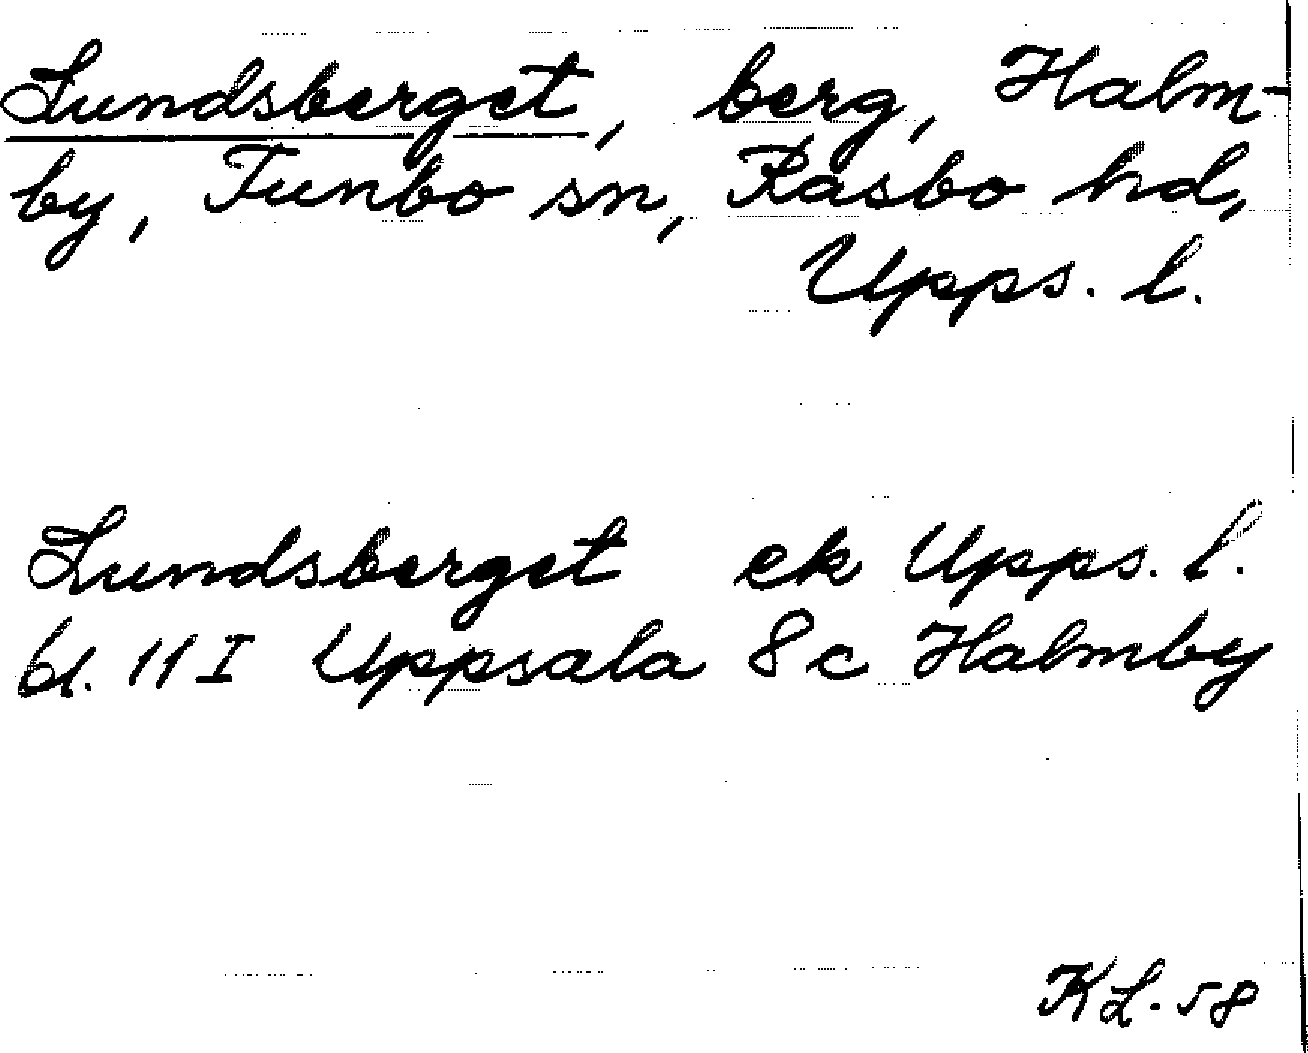 Lundsberget, berg, Halm-
by, Funbo sn, Rasbo hd,
Upps. l.
Lundsberget ek Upps. l.
bl. 11 I Uppsala 8c Halmby
KL. 58